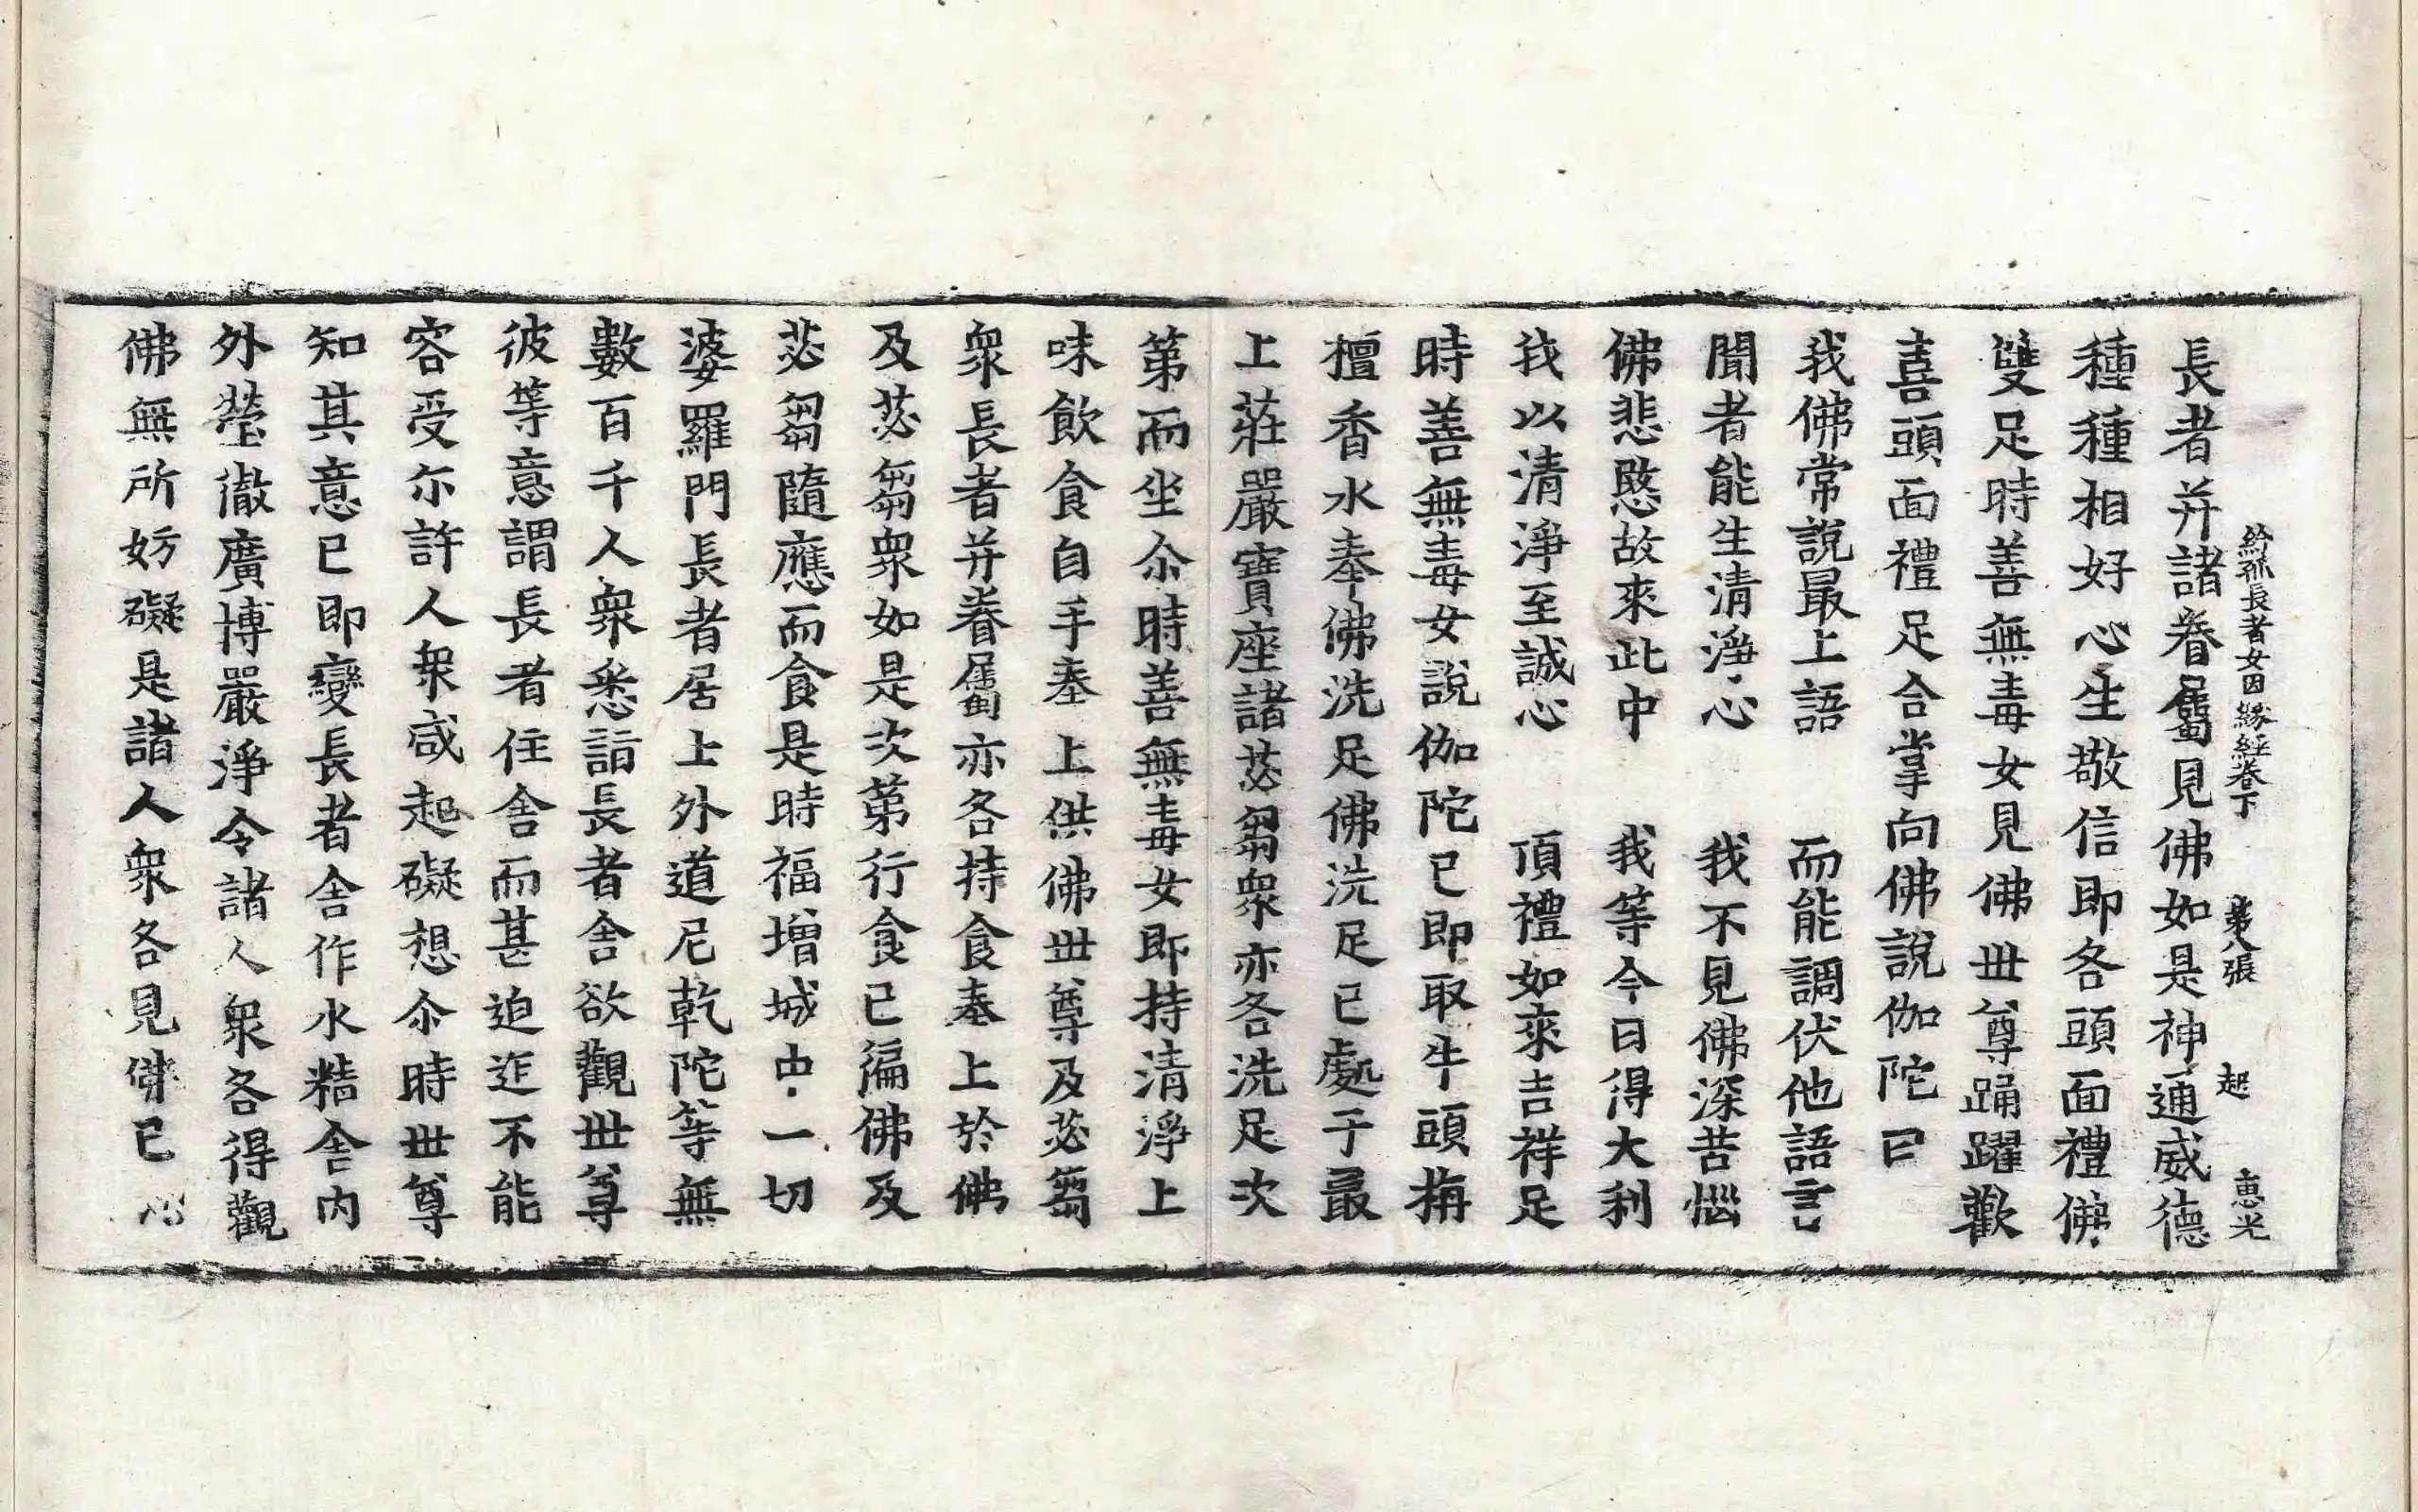 給孤長者女因緣經卷下 第八張 起 惠光
長者并諸眷屬見佛如是神通威德
種種相好心生敬信即各頭面禮佛
雙足時善無毒女見佛世尊踊躍歡
喜頭面禮足合掌向佛說伽陀曰
我佛常說最上語 而能調伏他語言
聞者能生清淨心 我不見佛深苦惱
佛悲愍故來此中 我等今日得大利
我以清淨至誠心 頂禮如來吉祥足
時善無毒女說伽陀已即取牛頭栴
檀香水奉佛洗足佛洗足已處于最
上莊嚴寶座諸苾芻衆亦各洗足次
第而坐尒時善無毒女即持清淨上
味飲食自手奉上供佛世尊及苾芻
衆長者并眷屬亦各持食奉上於佛
及苾芻衆如是次第行食已徧佛及
苾芻隨應而食是時福增城中一切
婆羅門長者居上外道尼乾陀等無
數百千人衆悉詣長者舍欲觀世尊
彼等意謂長者住舍而甚迫迮不能
容受尒許人衆咸起礙想尒時世尊
知其意已即變長者舍作水精舍内
外瑩澈廣博嚴淨令諸人衆各得觀
佛無所妨礙是諸人衆各見佛已心